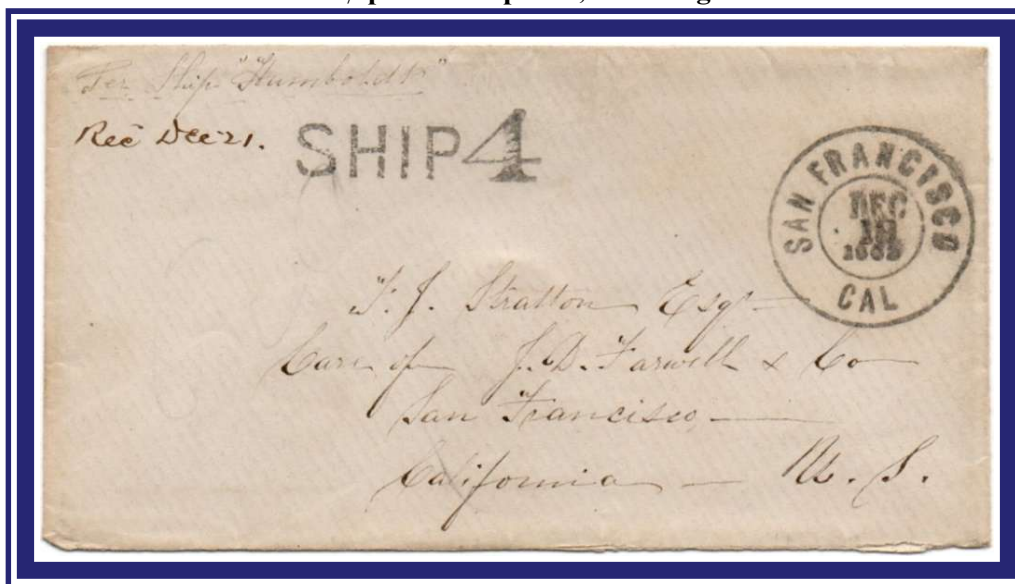 Per Ship "Humboldt"
Rec Dec 21.
SHIP 4
SAN FRANCISCO
DEC
CAL
F. J. Stratton Esqr
Care of J. D. Farwell & Co
San Francisco
California U. S.